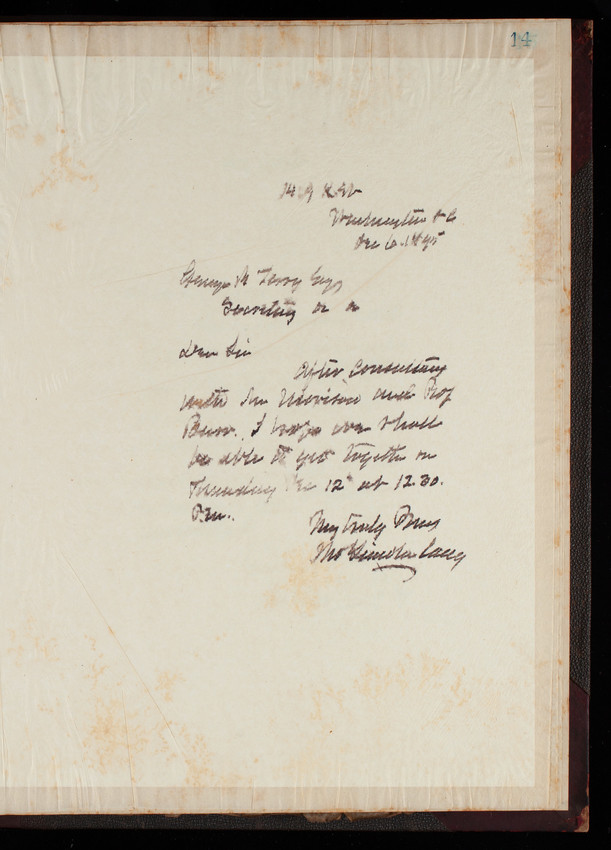 14
Washington D.C.
Dec 6. 1895
George M Terry Esq
Secretary
Dear Sir
After consulting
with Mr Morison and Prof
Burr. I hope we shall
be able to get together on
Thursday Dec 12 at 12.30.
P.M.
Very truly Yours
Thos Lincoln Casey